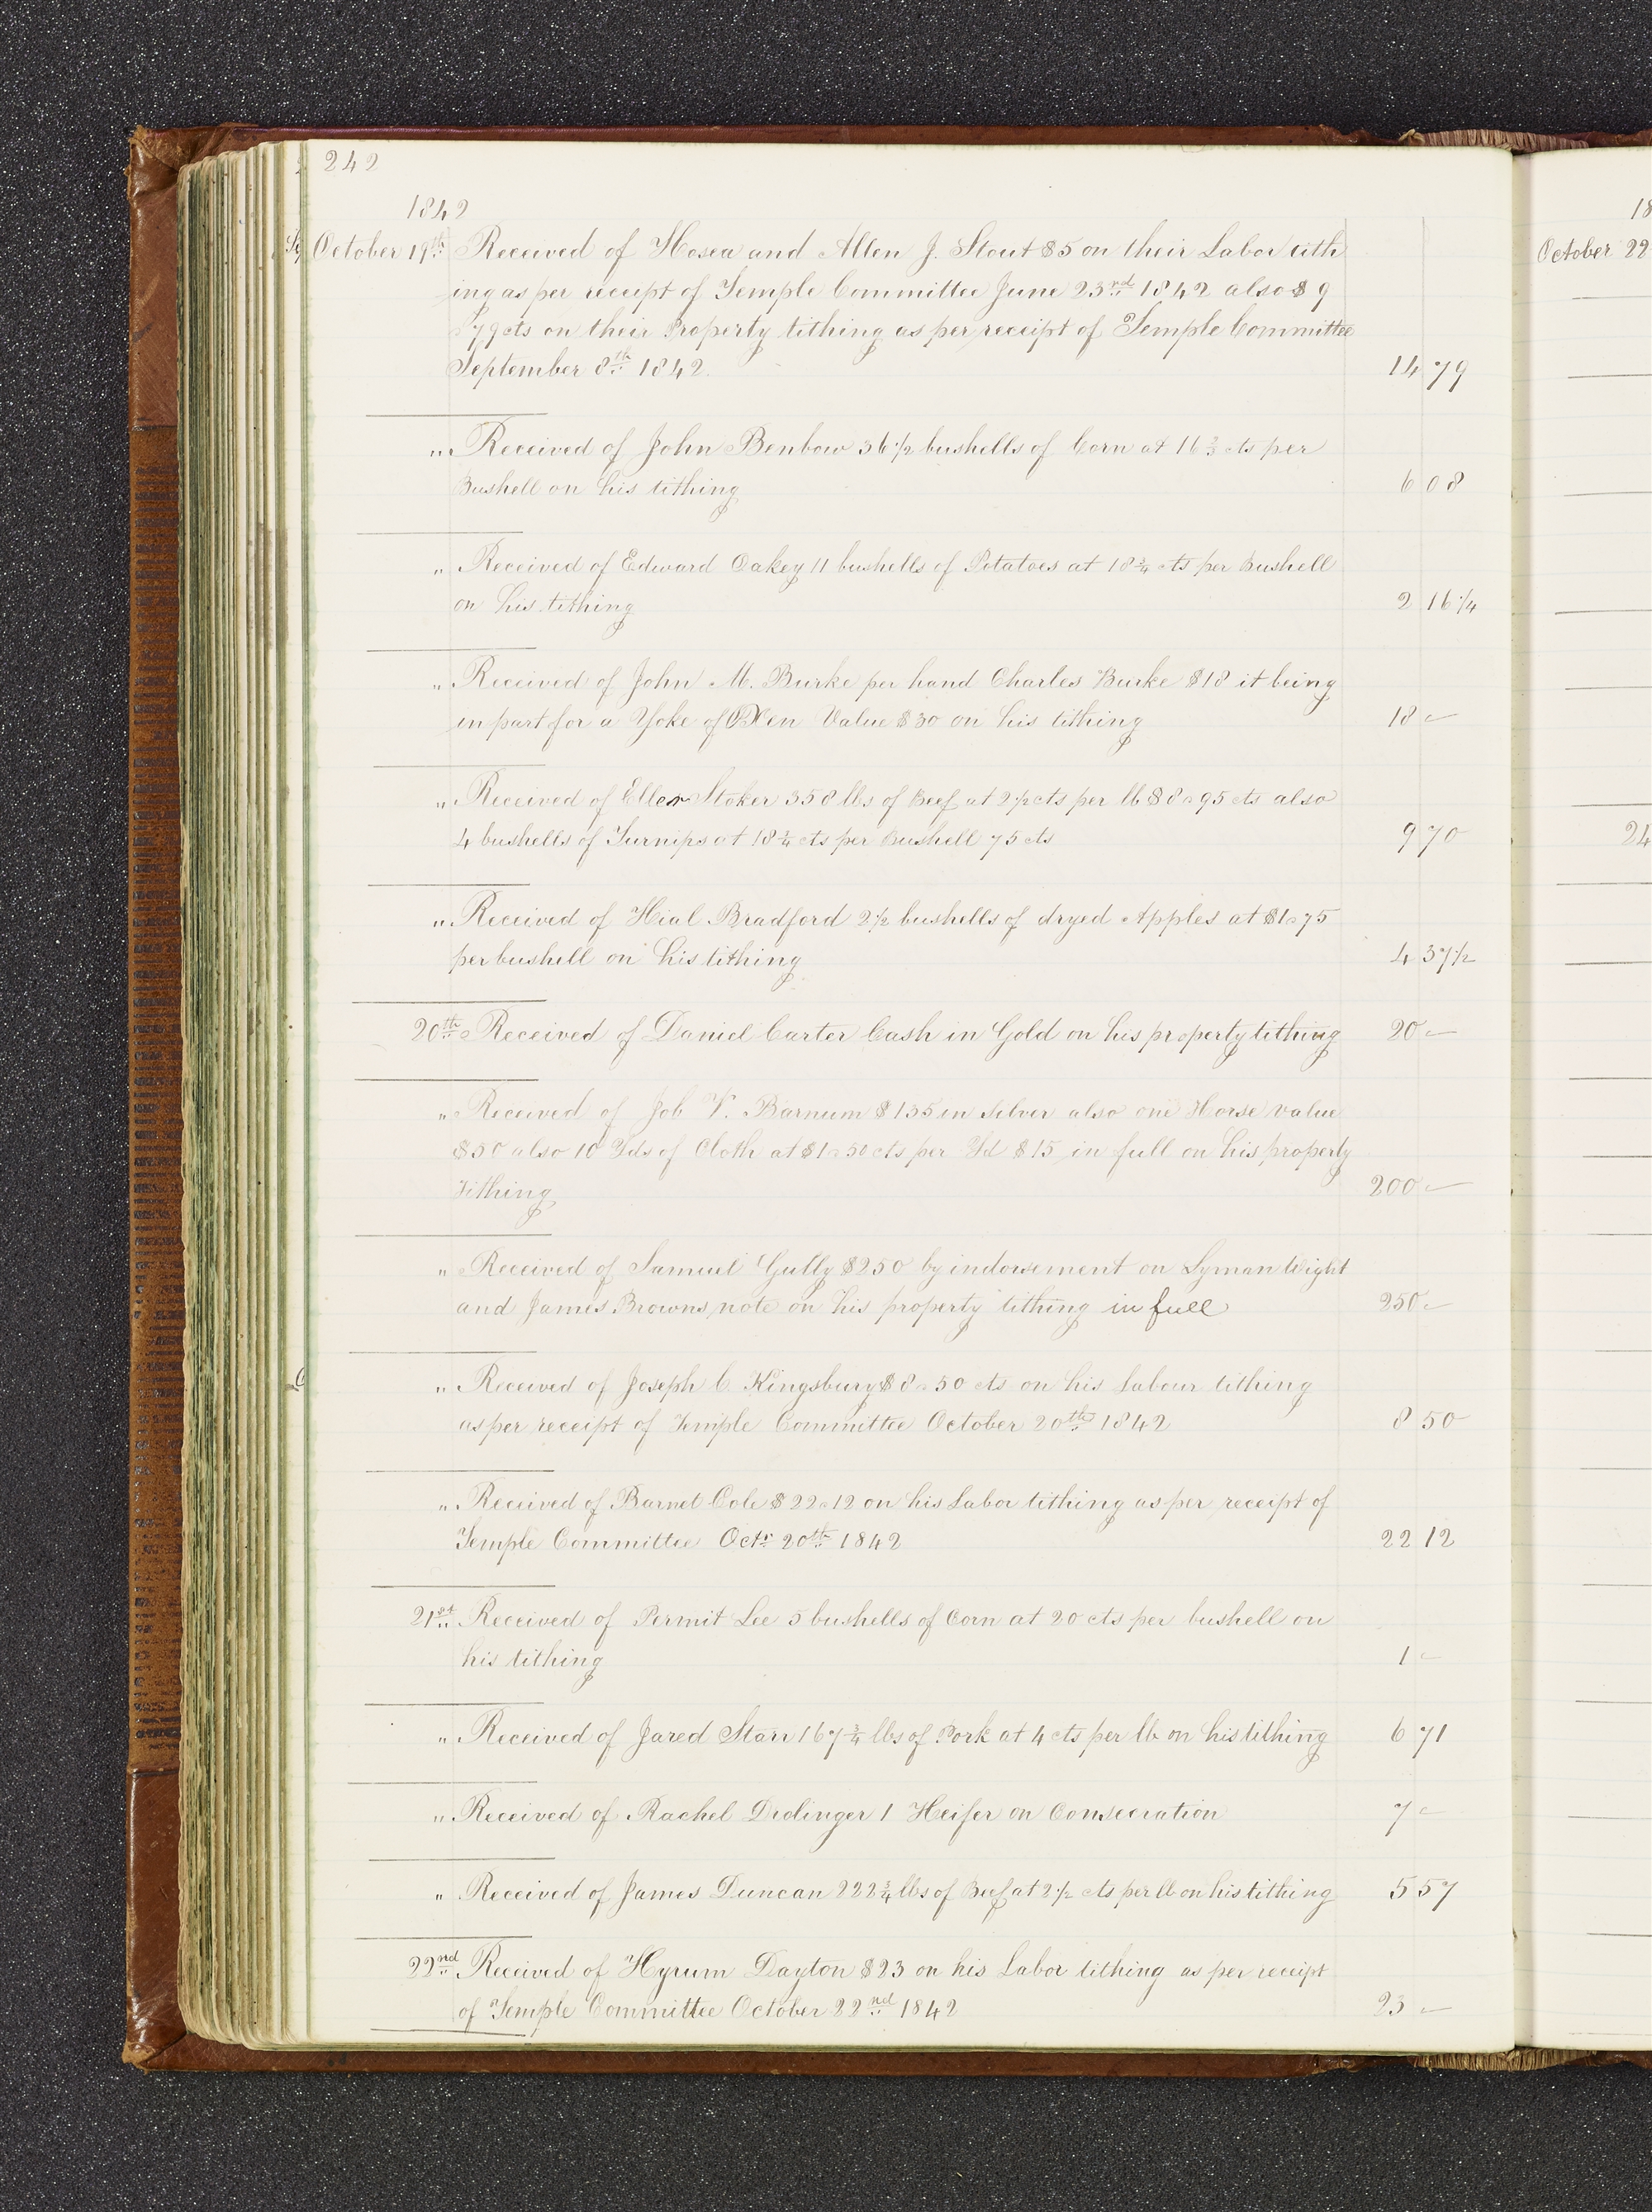 242
1842
October 19th Received of Hosea and Allen J. Stout $5 on their Labor tith
ing as per receipt of Temple Committee June 23rd 1842 also $9
79 cts on their Property tithing as per receipt of Temple Committee
September 8th 1842. 14 79
" Received of John Benbow 36 1/2 bushells of Corn at 16 2/3 cts per
Bushell on his tithing 6 08
" Received of Edward Oakey 11 bushells of Potatoes at 18 3/4 cts per Bushell
on his tithing 2 16 1/4
" Received of John M. Burke per hand Charles Burke $18 it being
in part for a Yoke of Oxen Value $30 on his tithing 18 —
" Received of Eller Stoker 358 lbs of Beef at 2 1/2 cts per lb $8 " 95 cts also
4 bushells of Turnips at 18 3/4 cts per Bushell 75 cts 9 70
" Received of Hial Bradford 2 1/2 bushells of dryed Apples at $1 " 75
per bushell on his tithing 4 37 1/2
20th Received of Daniel Carter Cash in Gold on his property tithing 20 —
" Received of Job V. Barnum $135 in silver also one Horse value
$50 also 10 Yds of Cloth at $1 " 50 cts per Yd $15 in full on his property
Tithing 200 —
" Received of Samuel Gully $250 by indorsement on Lyman Wight
and James Browns note on his property tithing in full 250 —
" Received of Joseph C. Kingsbury $8 " 50 cts on his Labour tithing
as per receipt of Temple Committee October 20th 1842 8 50
" Received of Barnet Cole $22 " 12 on his Labor tithing as per receipt of
Temple Committee Octr 20th 1842 22 12
21st Received of Permit Lee 5 bushells of Corn at 20 cts per bushell on
his tithing 1 —
" Received of Jared Starr 167 3/4 lbs of Pork at 4 cts per lb on his tithing 6 71
" Received of Rachel Drolinger 1 Heifer on Consecration 7 —
" Received of James Duncan 222 3/4 lbs of Beef at 2 1/2 cts per lb on his tithing 5 57
22nd Received of Hyrum Dayton $23 on his Labor tithing as per receipt
of Temple Committee October 22nd 1842 23 —
18
October 22
24